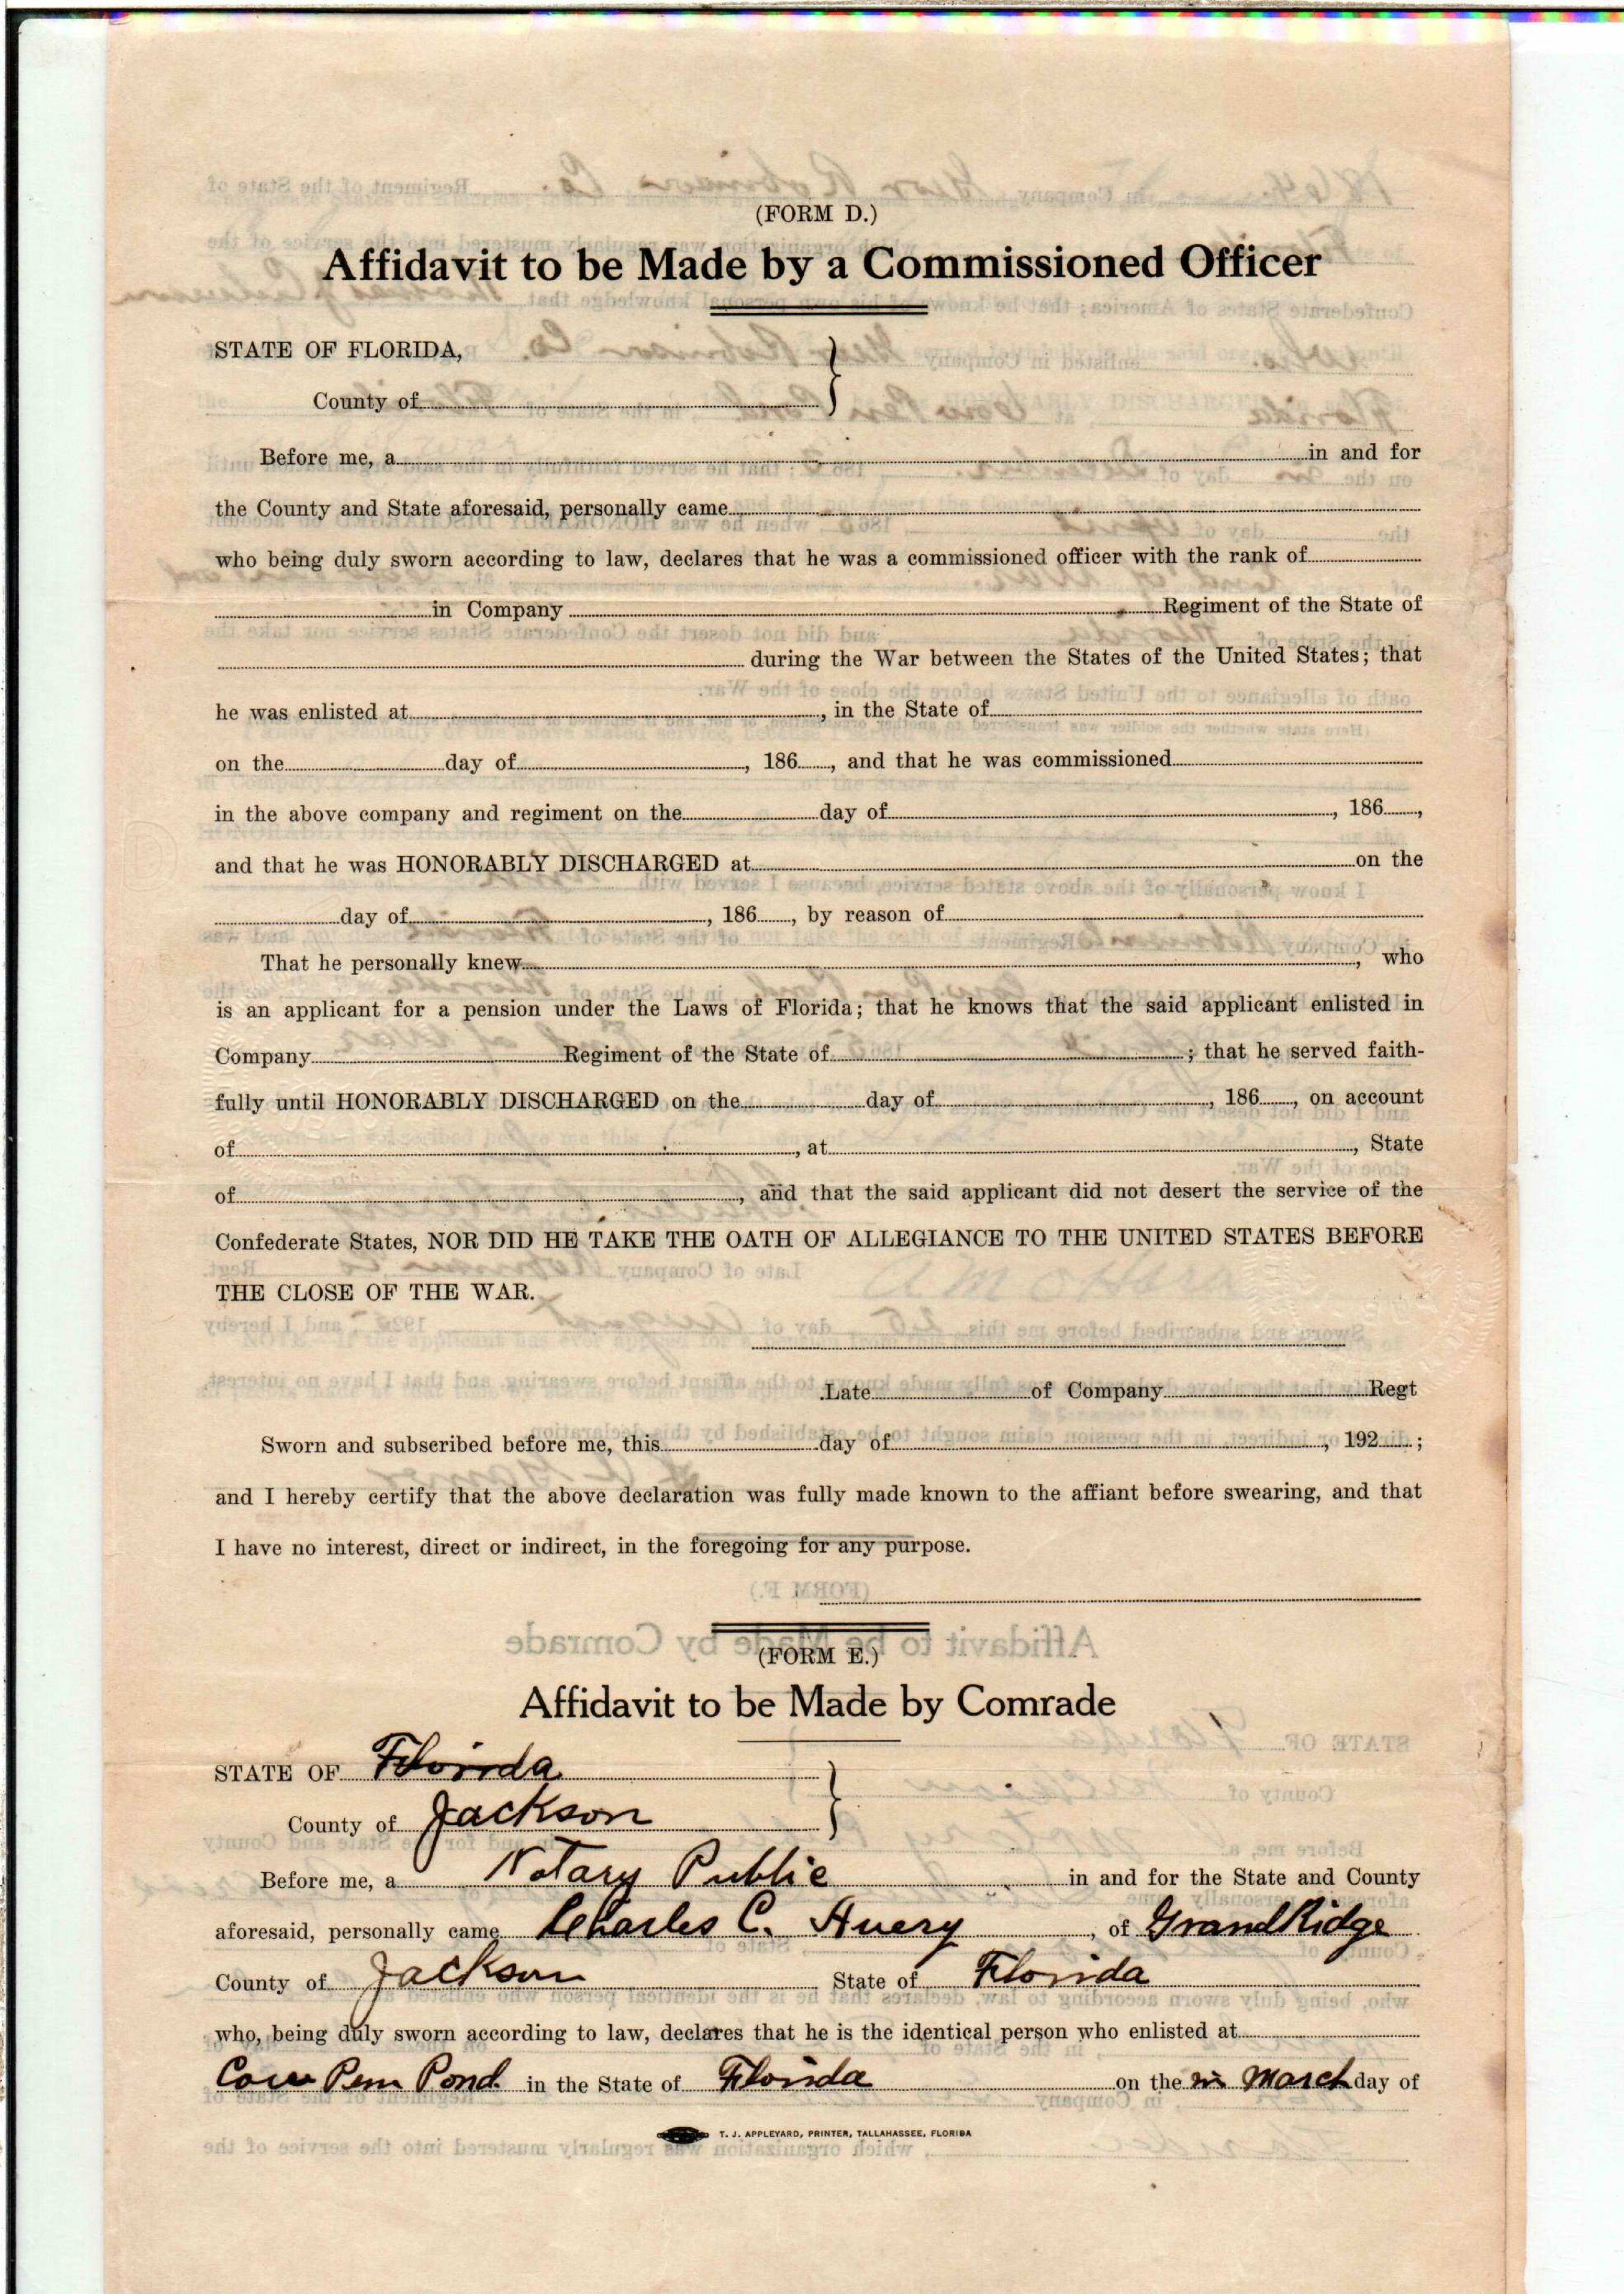 (FORM D.)
Affidavit to be Made by a Commissioned Officer
STATE OF FLORIDA,
County of
Before me, a in and for
the County and State aforesaid, personally came
who being duly sworn according to law, declares that he was a commissioned officer with the rank of
in Company Regiment of the State of
during the War between the States of the United States; that
he was enlisted at , in the State of
on the day of , 186 , and that he was commissioned
in the above company and regiment on the day of , 186 ,
and that he was HONORABLY DISCHARGED at on the
day of , 186 , by reason of
That he personally knew , who
is an applicant for a pension under the Laws of Florida; that he knows that the said applicant enlisted in
Company Regiment of the State of ; that he served faith-
fully until HONORABLY DISCHARGED on the day of , 186 , on account
of , at , State
of , and that the said applicant did not desert the service of the
Confederate States, NOR DID HE TAKE THE OATH OF ALLEGIANCE TO THE UNITED STATES BEFORE
THE CLOSE OF THE WAR.
Late of Company Regt
Sworn and subscribed before me, this day of , 192 ;
and I hereby certify that the above declaration was fully made known to the affiant before swearing, and that
I have no interest, direct or indirect, in the foregoing for any purpose.
(FORM E.)
Affidavit to be Made by Comrade
STATE OF Florida
County of Jackson
Before me, a Notary Public in and for the State and County
aforesaid, personally came Charles C. , of Grand Ridge
County of Jackson State of Florida
who, being duly sworn according to law, declares that he is the identical person who enlisted at
Cow Pen Pond in the State of Florida on the in March day of
T. J. APPLEYARD, PRINTER, TALLAHASSEE, FLORIDA